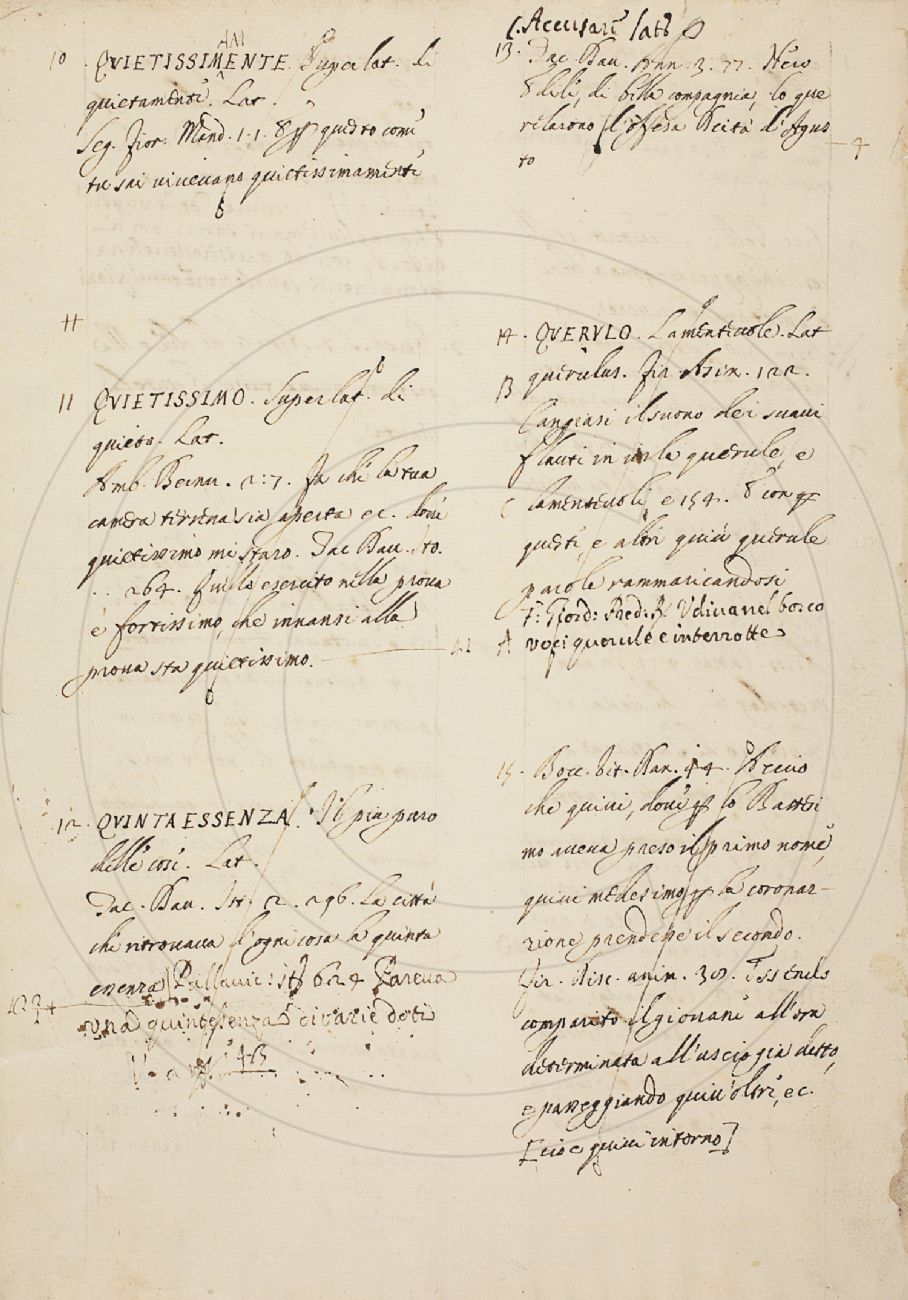 10 . QVIETISSIMENTE. Superlat. di
AM
quietamente. Lat.
Seg. Fior. Mand. 1.1. & questo come
tu sai vivevano quietissimamente
11
11 QVIETISSIMO. Superlat. di
quieto. Lat.
Amb. Bernu. 2.7. Fa che la tua
camera terrena sia aperta ec. dove
quietissimo mi starò. Dav.
264. Quello esercito nella prova
è fortissimo, che innanzi alla
prova sta quietissimo.
12. QVINTAESSENZA. Il più puro
delle cose. Lat.
2. 296. La città
che ritrovava d'ogni cosa la quinta
essenza Pallavic: 624 Pareva
una quintessenza di varie doti
C. Accusare Lat
13. 3. 77. Nerio
fedeli, di bella compagnia, lo que
relarono l'offesa Deità d'Agus
to
4
14. QVERVLO. Lamentevole. Lat
B querulus. Fir. Asin. 122.
Cangiasi il suono dei suavi
flauti in querule, e
C lamentevoli, e 154. & con
questi, e altri quivi querule
parole rammaricandosi
F: Giord: Pred: R. Udiva nel bosco
A voci querule e interrotte
15. Bocc. Vit. Dan. 44.
che quivi, dove per lo Battesi
mo aveva preso il primo nome,
quivi medesimo per la coronaz-
zione prendere il secondo.
Fir. Disc. anim. 30. Essendo
comparito il giovane all'ora
determinata all'uscio già detto,
e passeggiando quivi oltre, ec.
[cioe quivi intorno]